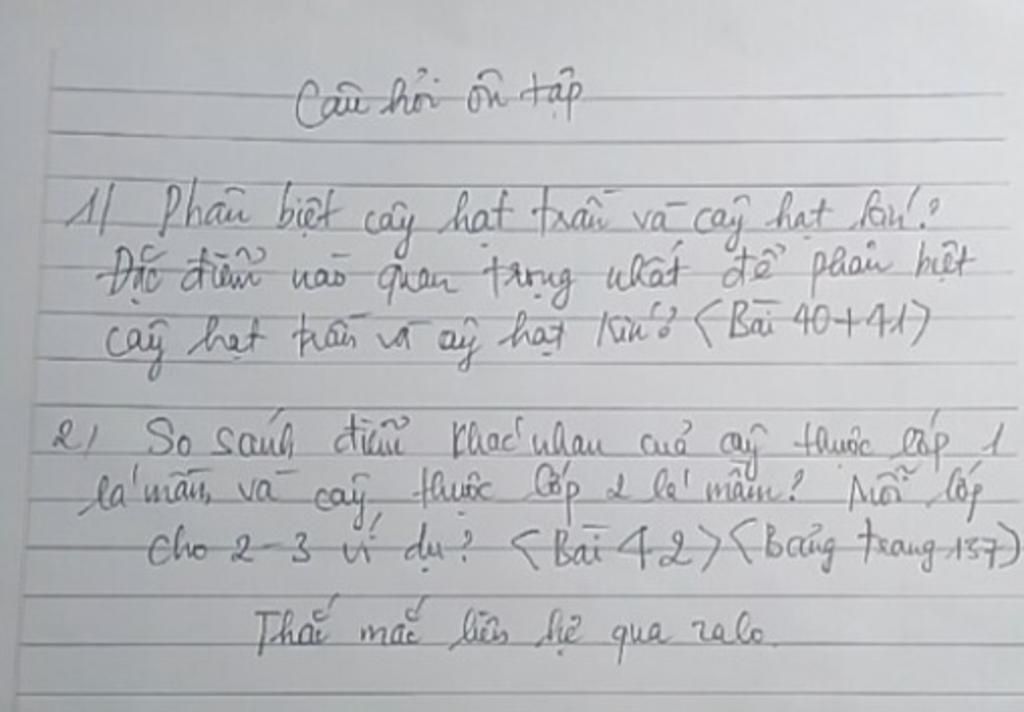 Câu hỏi ôn tập
1/ Phân biệt cây hạt trần và cây hạt kín?
Đặc điểm nào quan trọng nhất để phân biệt
cây hạt trần và cây hạt kín? (Bài 40+41)
2/ So sánh điểm khác nhau của cây thuộc lớp 1
lá mầm, và cây, thuộc lớp 2 lá mầm? Mỗi lớp
cho 2-3 ví dụ? (Bài 42) (Bảng trang 137)
Thắc mắc liên hệ qua zalo.